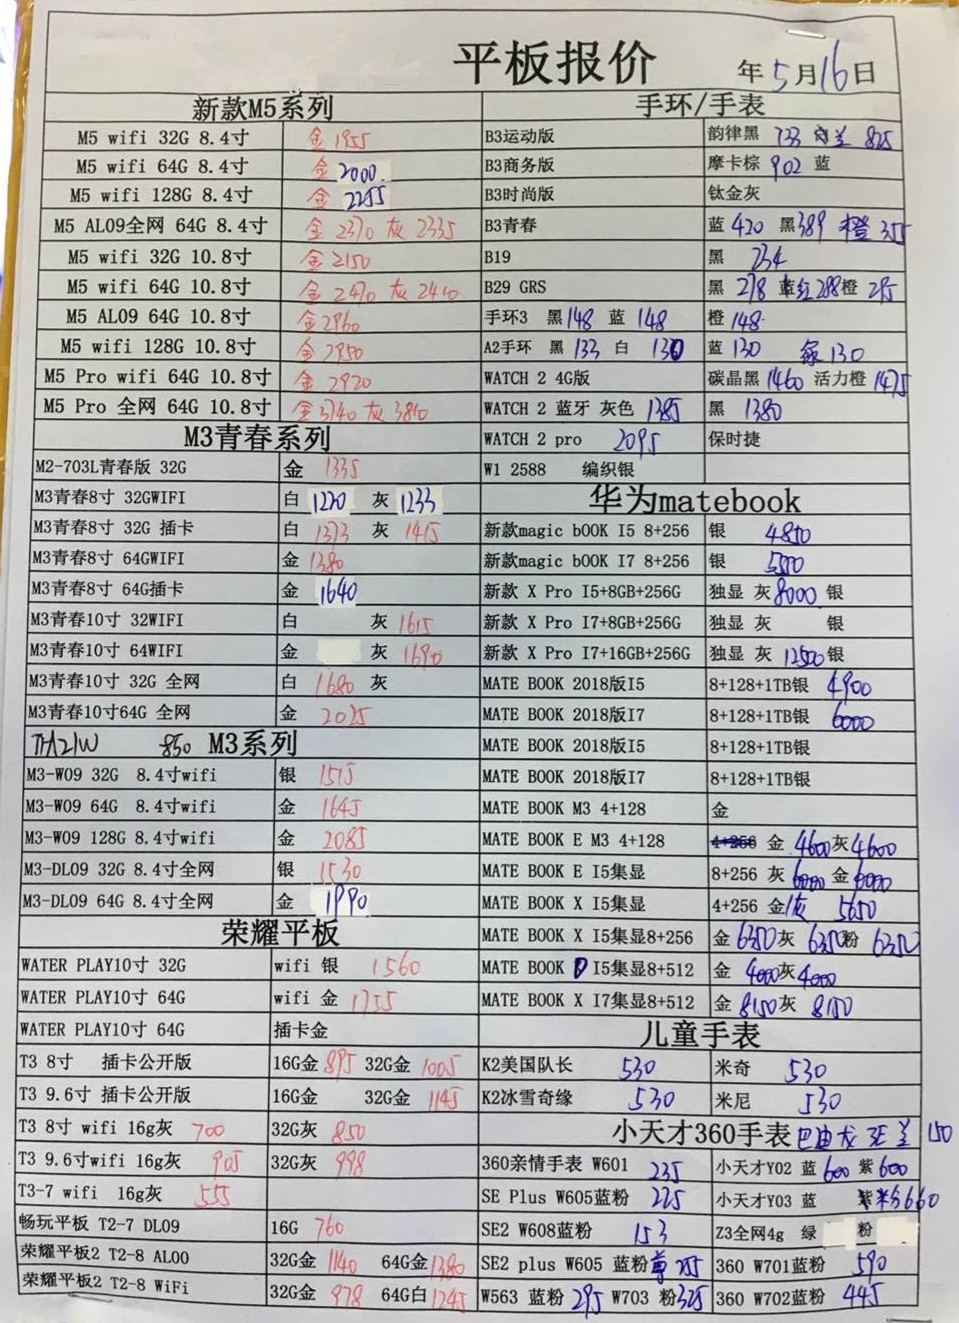 平板报价
年5月16日
新款M5系列
M5 wifi 32G 8.4寸 金 1955
M5 wifi 64G 8.4寸 金 2000
M5 wifi 128G 8.4寸 金 2255
M5 AL09全网 64G 8.4寸 金 2370 灰 2335
M5 wifi 32G 10.8寸 金 2150
M5 wifi 64G 10.8寸 金 2470 灰 2410
M5 AL09 64G 10.8寸 金 2960
M5 wifi 128G 10.8寸 金 2950
M5 Pro wifi 64G 10.8寸 金 2920
M5 Pro 全网 64G 10.8寸 金 3740 灰 3810
M3青春系列
M2-703L青春版 32G 金 1335
M3青春8寸 32GWIFI 白 1220 灰 1233
M3青春8寸 32G 插卡 白 1373 灰 1415
M3青春8寸 64GWIFI 金 1380
M3青春8寸 64G插卡 金 1640
M3青春10寸 32WIFI 白 灰 1615
M3青春10寸 64WIFI 金 灰 1690
M3青春10寸 32G 全网 白 1680 灰
M3青春10寸64G 全网 金 2025
850 M3系列
M3-W09 32G 8.4寸wifi 银 1515
M3-W09 64G 8.4寸wifi 金 1645
M3-W09 128G 8.4寸wifi 金 2085
M3-DL09 32G 8.4寸全网 银 1530
M3-DL09 64G 8.4寸全网 金 1990
荣耀平板
WATER PLAY10寸 32G wifi 银 1560
WATER PLAY10寸 64G wifi 金 1755
WATER PLAY10寸 64G 插卡金
T3 8寸 插卡公开版 16G金 895 32G金 1005
T3 9.6寸 插卡公开版 16G金 32G金 1145
T3 8寸 wifi 16g灰 700 32G灰 850
T3 9.6寸wifi 16g灰 905 32G灰 998
T3-7 wifi 16g灰 555
畅玩平板 T2-7 DL09 16G 760
荣耀平板2 T2-8 AL00 32G金 1140 64G金 1380
荣耀平板2 T2-8 WiFi 32G金 978 64G白 1245
手环/手表
B3运动版 韵律黑 733 兰 825
B3商务版 摩卡棕 902 蓝
B3时尚版 钛金灰
B3青春 蓝 420 黑 389 橙 355
B19 黑 234
B29 GRS 黑 278 红 288 橙 295
手环3 黑 148 蓝 148 橙 148
A2手环 黑 133 白 130 蓝 130 绿 130
WATCH 2 4G版 碳晶黑 1460 活力橙 1475
WATCH 2 蓝牙 灰色 1385 黑 1380
WATCH 2 pro 2095 保时捷
W1 2588 编织银
华为matebook
新款magic bOOK I5 8+256 银 4850
新款magic bOOK I7 8+256 银 5500
新款 X Pro I5+8GB+256G 独显 灰 8000 银
新款 X Pro I7+8GB+256G 独显 灰 银
新款 X Pro I7+16GB+256G 独显 灰 12500 银
MATE BOOK 2018版I5 8+128+1TB银 4900
MATE BOOK 2018版I7 8+128+1TB银 6000
MATE BOOK 2018版I5 8+128+1TB银
MATE BOOK 2018版I7 8+128+1TB银
MATE BOOK M3 4+128 金
MATE BOOK E M3 4+128 4+256 金 4600 灰 4600
MATE BOOK E I5集显 8+256 灰 6000 金 6000
MATE BOOK X I5集显 4+256 金/灰 5650
MATE BOOK X I5集显8+256 金 6350 灰 6350 粉 6350
MATE BOOK D I5集显8+512 金 4000 灰 4000
MATE BOOK X I7集显8+512 金 8150 灰 8150
儿童手表
K2美国队长 530 米奇 530
K2冰雪奇缘 530 米尼 530
小天才360手表 巴迪龙 兰 150
360亲情手表 W601 235 小天才Y02 蓝 600 紫 600
SE Plus W605蓝粉 225 小天才Y03 蓝 粉 660
SE2 W608蓝粉 153 Z3全网4g 绿 粉
SE2 plus W605 蓝粉 255 360 W701蓝粉 590
W563 蓝粉 295 W703 粉 325 360 W702蓝粉 445